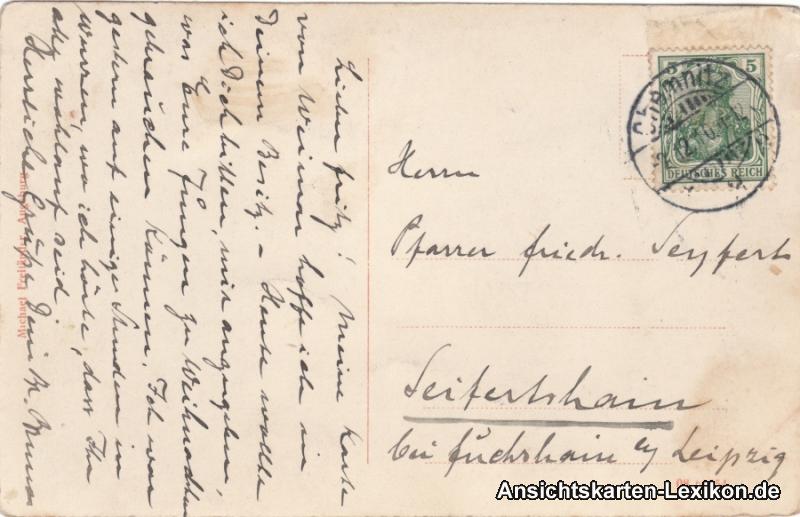 Lieber Fritz! Meine Karte
von Weimar hoffe ich in
Deinem Besitz. – Heute wollte
ich Dich bitten, mir anzugeben,
was Eure Jungen zu Weihnachten
gebrauchen können. Ich war
gestern auf einige Stunden in
Wurzen, wo ich hörte, dass Ihr
alle wohlauf seid.
Herzliche Grüße Dein Br. Bruno
Michael
Chemnitz
5
DEUTSCHES REICH
Herrn
Pfarrer Friedr. Seyfert
Seifertshain
bei Fuchshain b/ Leipzig
Ansichtskarten-Lexikon.de